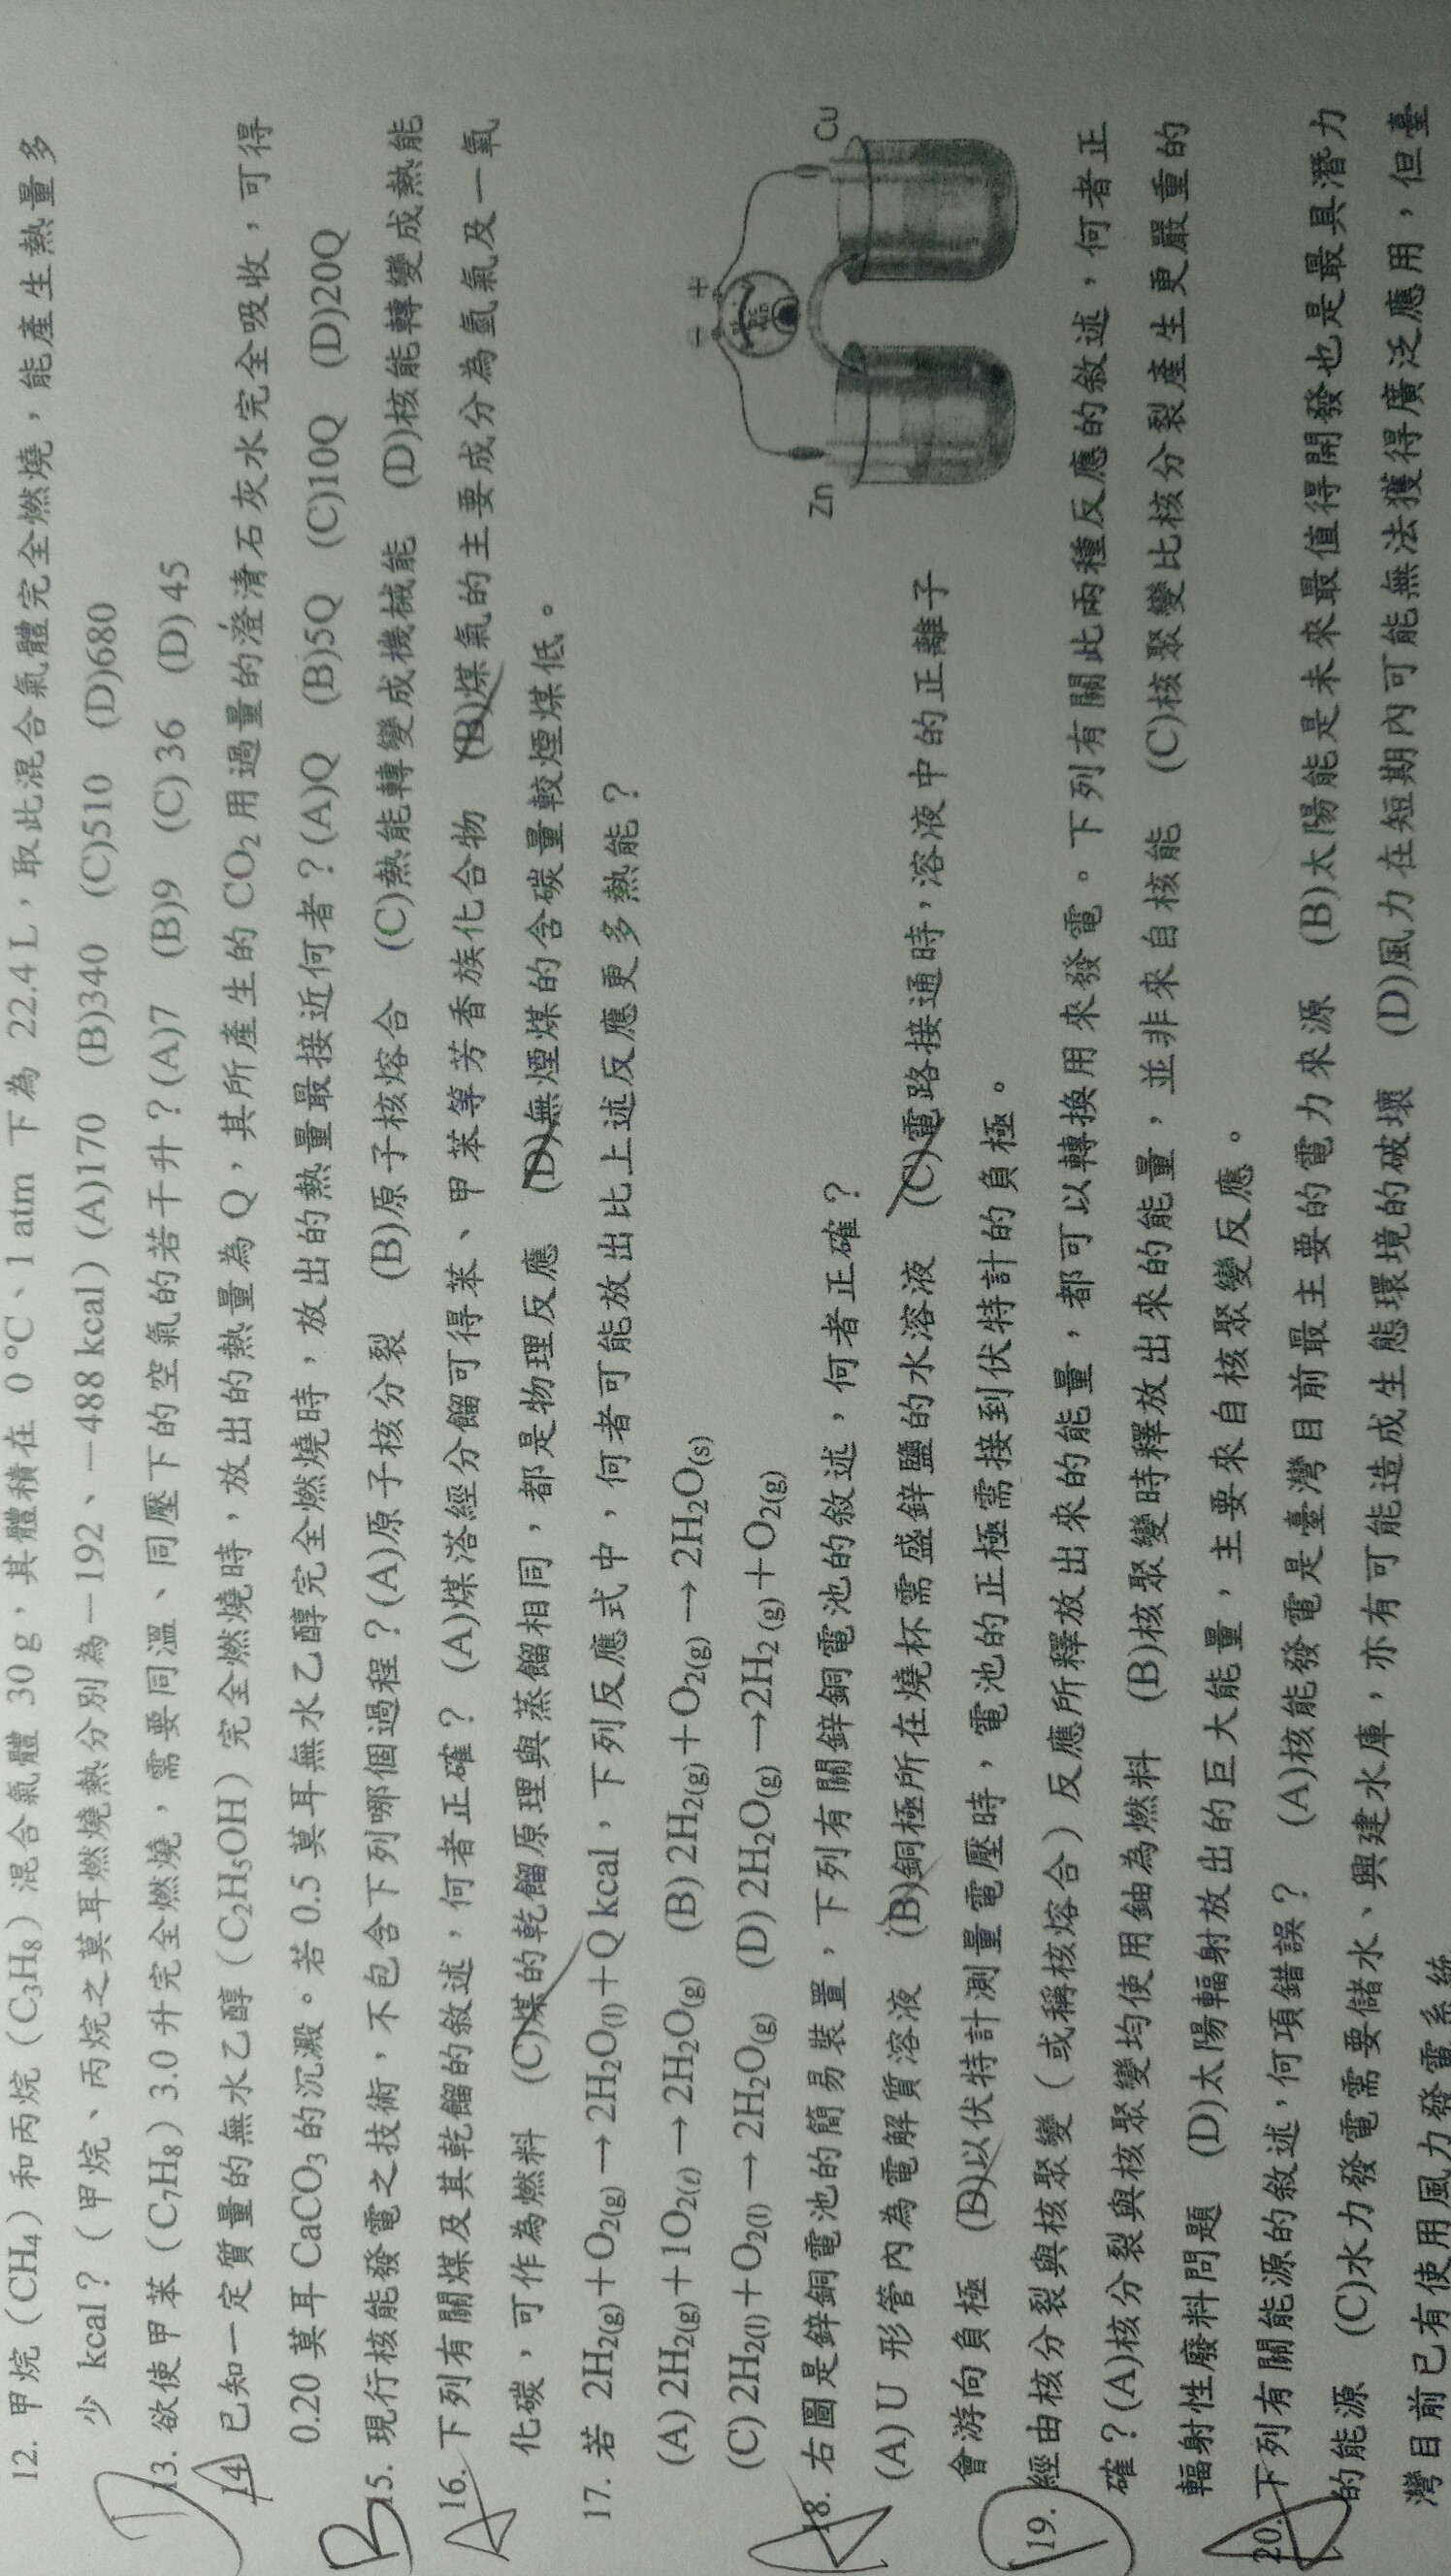 12. 甲烷（CH₄）和丙烷（C₃H₈）混合氣體 30 g，其體積在 0 ℃、1 atm 下為 22.4 L，取此混合氣體完全燃燒，能產生熱量多
少 kcal？（甲烷、丙烷之莫耳燃燒熱分別為－192、－488 kcal）(A)170 (B)340 (C)510 (D)680
D
13. 欲使甲苯（C₇H₈）3.0 升完全燃燒，需要同溫、同壓下的空氣的若干升？(A)7 (B)9 (C) 36 (D) 45
A
14. 已知一定質量的無水乙醇（C₂H₅OH）完全燃燒時，放出的熱量為 Q，其所產生的 CO₂ 用過量的澄清石灰水完全吸收，可得
0.20 莫耳 CaCO₃ 的沉澱。若 0.5 莫耳無水乙醇完全燃燒時，放出的熱量最接近何者？(A)Q (B)5Q (C)10Q (D)20Q
B
15. 現行核能發電之技術，不包含下列哪個過程？(A)原子核分裂 (B)原子核熔合 (C)熱能轉變成機械能 (D)核能轉變成熱能
A
16. 下列有關煤及其乾餾的敘述，何者正確？ (A)煤溚經分餾可得苯、甲苯等芳香族化合物 (B)煤氣的主要成分為氫氣及一氧
化碳，可作為燃料 (C)煤的乾餾原理與蒸餾相同，都是物理反應 (D)無煙煤的含碳量較煙煤低。
17. 若 2H₂(g)＋O₂(g)→2H₂O(l)＋Q kcal，下列反應式中，何者可能放出比上述反應更多熱能？
(A) 2H₂(g)＋1O₂(ℓ)→2H₂O(g) (B) 2H₂(g)＋O₂(g)→2H₂O(s)
(C) 2H₂(l)＋O₂(l)→2H₂O(g) (D) 2H₂O(g)→2H₂ (g)＋O₂(g)
A
18. 右圖是鋅銅電池的簡易裝置，下列有關鋅銅電池的敘述，何者正確？
(A) U 形管內為電解質溶液 (B)銅極所在燒杯需盛鋅鹽的水溶液 (C)電路接通時，溶液中的正離子
會游向負極 (D)以伏特計測量電壓時，電池的正極需接到伏特計的負極。
－ ＋
Zn Cu
D
19. 經由核分裂與核聚變（或稱核熔合）反應所釋放出來的能量，都可以轉換用來發電。下列有關此兩種反應的敘述，何者正
確？(A)核分裂與核聚變均使用鈾為燃料 (B)核聚變時釋放出來的能量，並非來自核能 (C)核聚變比核分裂產生更嚴重的
輻射性廢料問題 (D)太陽輻射放出的巨大能量，主要來自核聚變反應。
A
20. 下列有關能源的敘述，何項錯誤？ (A)核能發電是臺灣目前最主要的電力來源 (B)太陽能是未來最值得開發也是最具潛力
的能源 (C)水力發電需要儲水、興建水庫，亦有可能造成生態環境的破壞 (D)風力在短期內可能無法獲得廣泛應用，但臺
灣目前已有使用風力發電系統